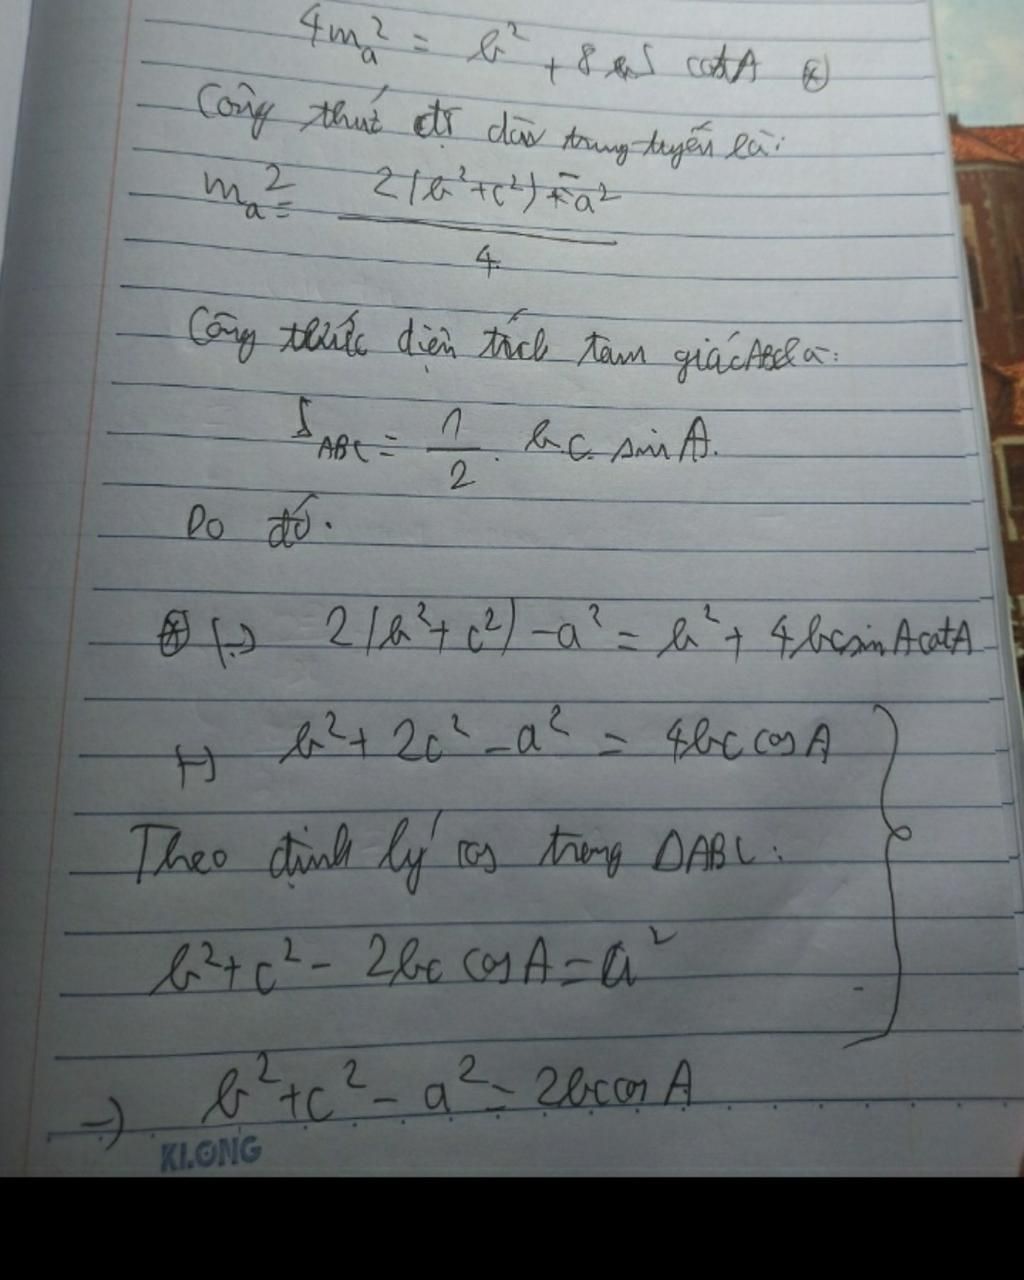 4mₐ² = b² + 8 S cotA (*)
Công thức độ dài trung tuyến là:
mₐ² = 2(b²+c²) - a²
4
Công thức diện tích tam giác ABC là:
S_ABC = 1/2 . b.c. sin A.
Do đó.
(*) (-) 2(b²+c²) - a² = b² + 4bcsinAcotA
(-) b² + 2c² - a² = 4bc cosA
Theo định lý cos trong ΔABC:
b² + c² - 2bc cosA = a²
-) b² + c² - a² = 2bccos A
KLONG